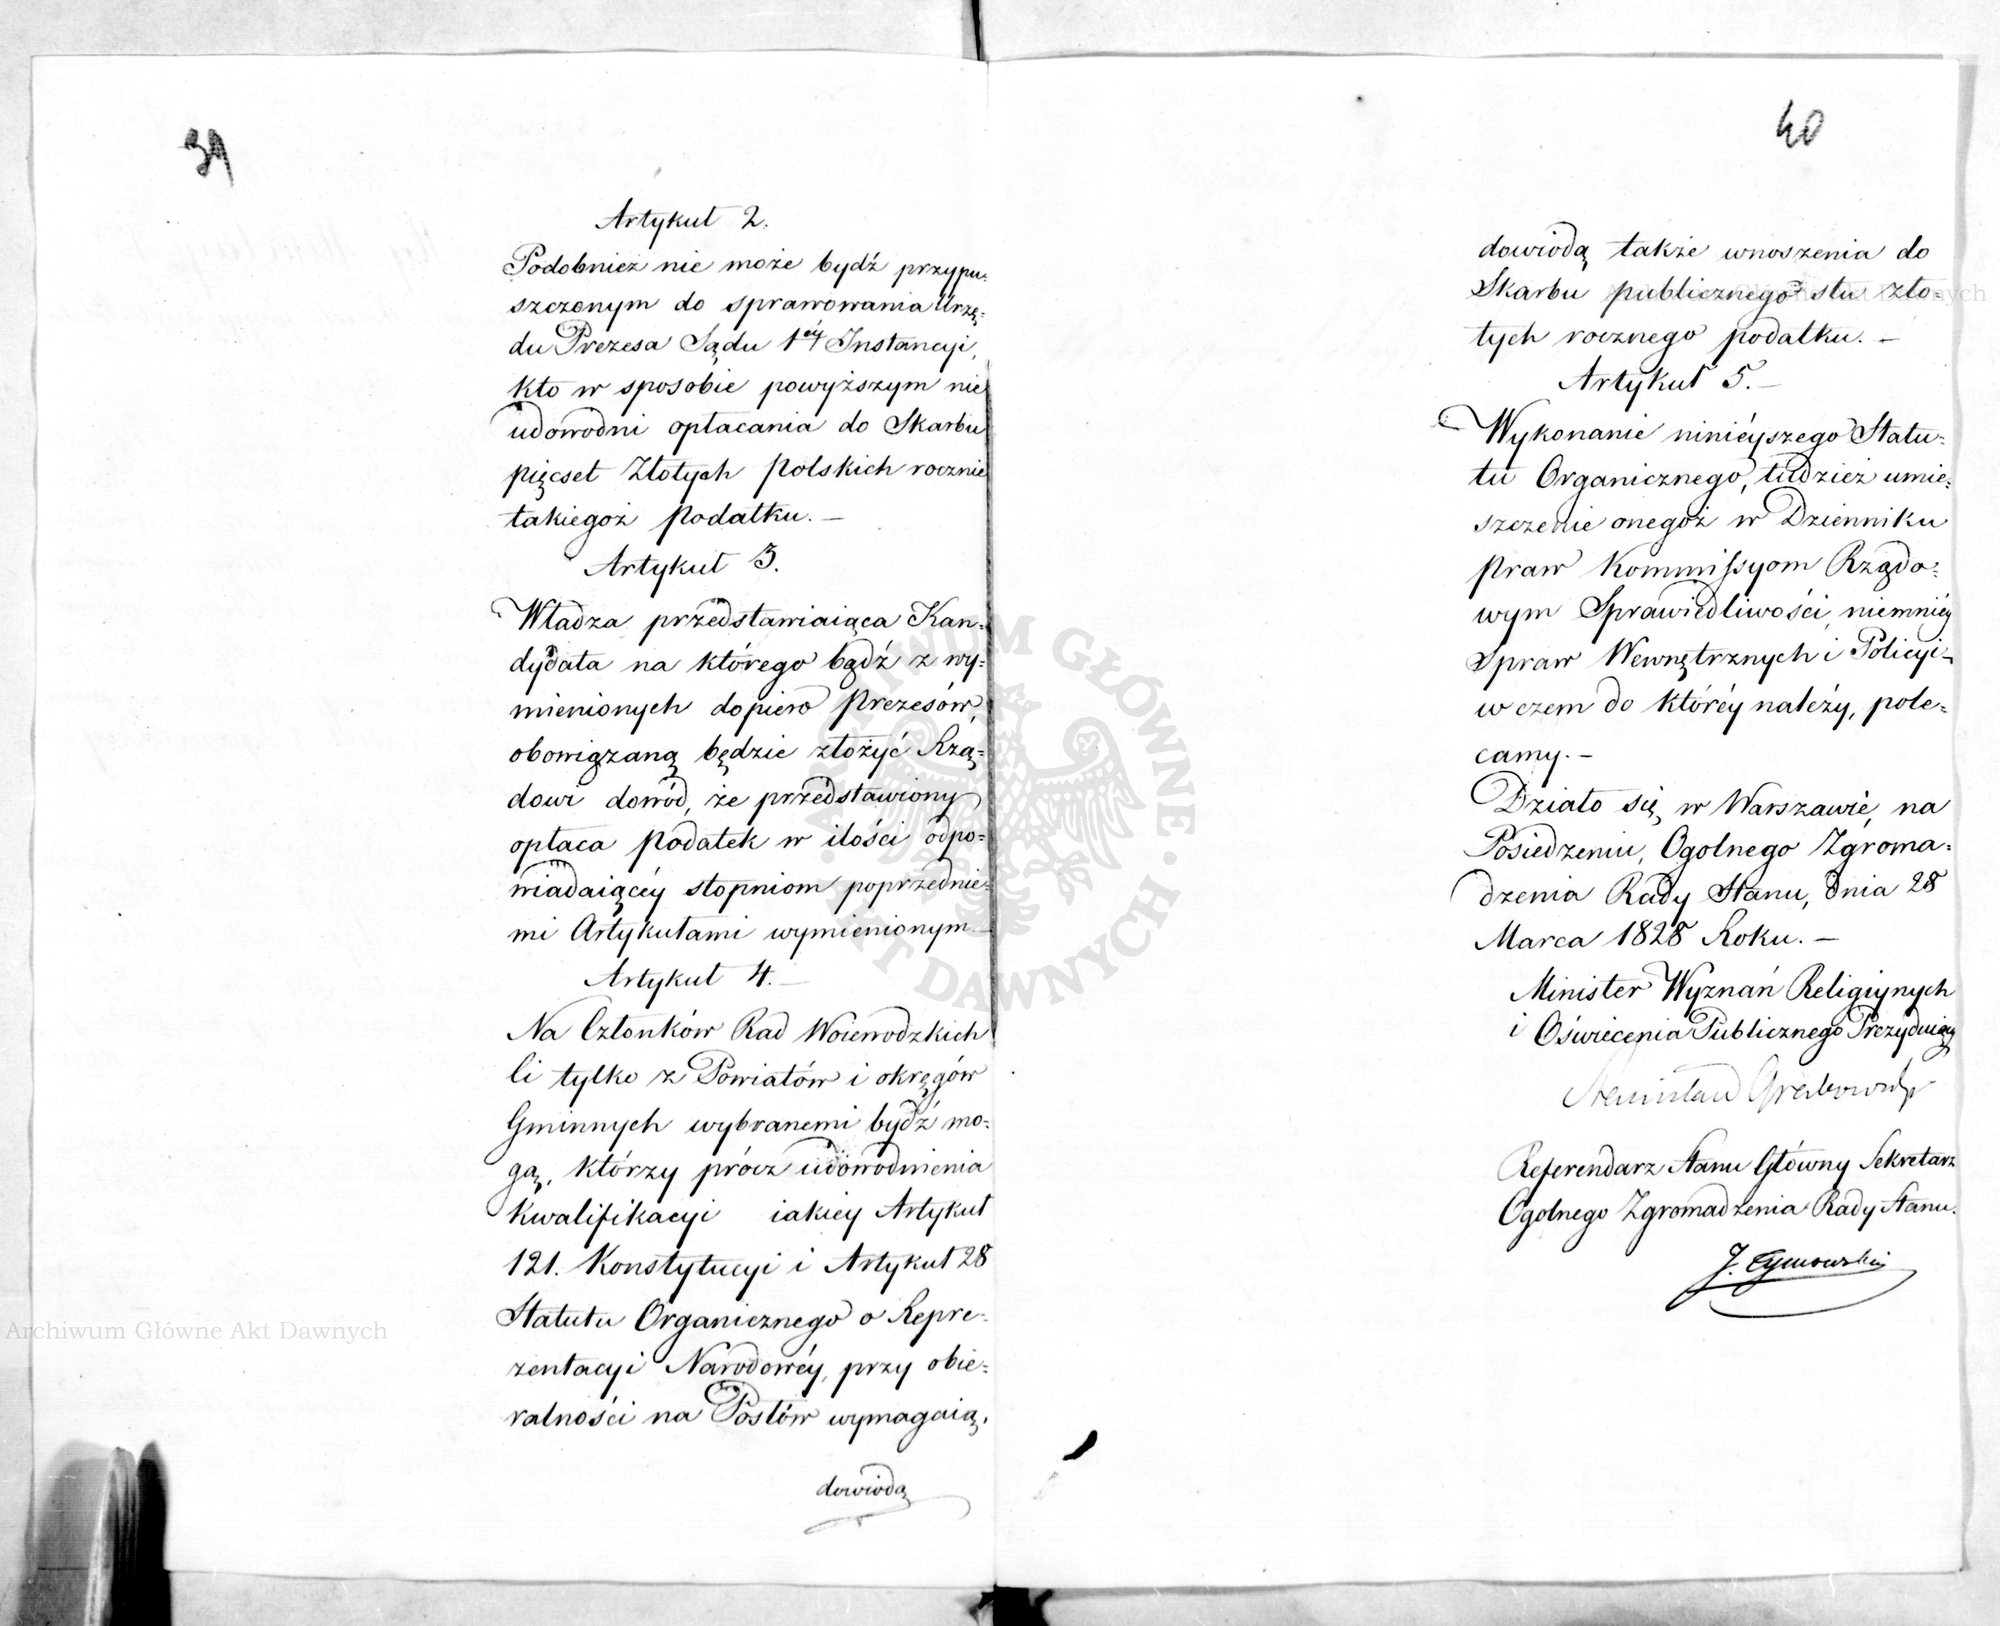 39
Artykuł 2.
Podobnież nie może bydź przypu-
szczonym do sprawowania Urzę-
du Prezesa Sądu 1éy Instancyi,
kto w sposobie powyższym nie
udowodni opłacania do Skarbu
pięcset Złotych polskich rocznie
takiegoż podatku. –
Artykuł 3.
Władza przedstawiaiąca Kan-
dydata na którego bądź z wy-
mienionych dopiero Prezesów,
obowiązaną będzie złożyć Rzą-
dowi dowód, że przedstawiony
opłaca podatek w ilości odpo-
wiadaiącéy stopniom poprzednie-
mi Artykułami wymienionym. –
Artykuł 4. –
Na Członków Rad Woiewodzkich
li tylko z Powiatów i okręgów
Gminnych wybranemi bydź mo-
gą, którzy prócz udowodnienia
kwalifikacyi iakiey Artykuł
121. Konstytucyi i Artykuł 28
Statutu Organicznego o Repre-
zentacyi Narodowéy, przy obie-
ralności na Posłów wymagaią,
dowiodą
40
dowiodą także wnoszenia do
Skarbu publicznego stu zło-
tych rocznego podatku. –
Artykuł 5. –
Wykonanie ninieyszego Statu-
tu Organicznego, tudzież umie-
szczenie onegoż w Dzienniku
praw Kommissyom Rządo-
wym Sprawiedliwości, niemniéy
Spraw Wewnętrznych i Policyi –
w czem do któréy należy, pole-
camy. –
Działo się w Warszawie, na
Posiedzeniu, Ogolnego Zgroma-
dzenia Rady Stanu, dnia 28
Marca 1828 Roku. –
Minister Wyznań Religiynych
i Oświecenia Publicznego Prezyduiący
Stanisław Grabowski
Referendarz Stanu Główny Sekretarz
Ogolnego Zgromadzenia Rady Stanu.
J. Tymowski
ARCHIWUM GŁÓWNE AKT DAWNYCH
Archiwum Główne Akt Dawnych
Archiwum Główne Akt Dawnych